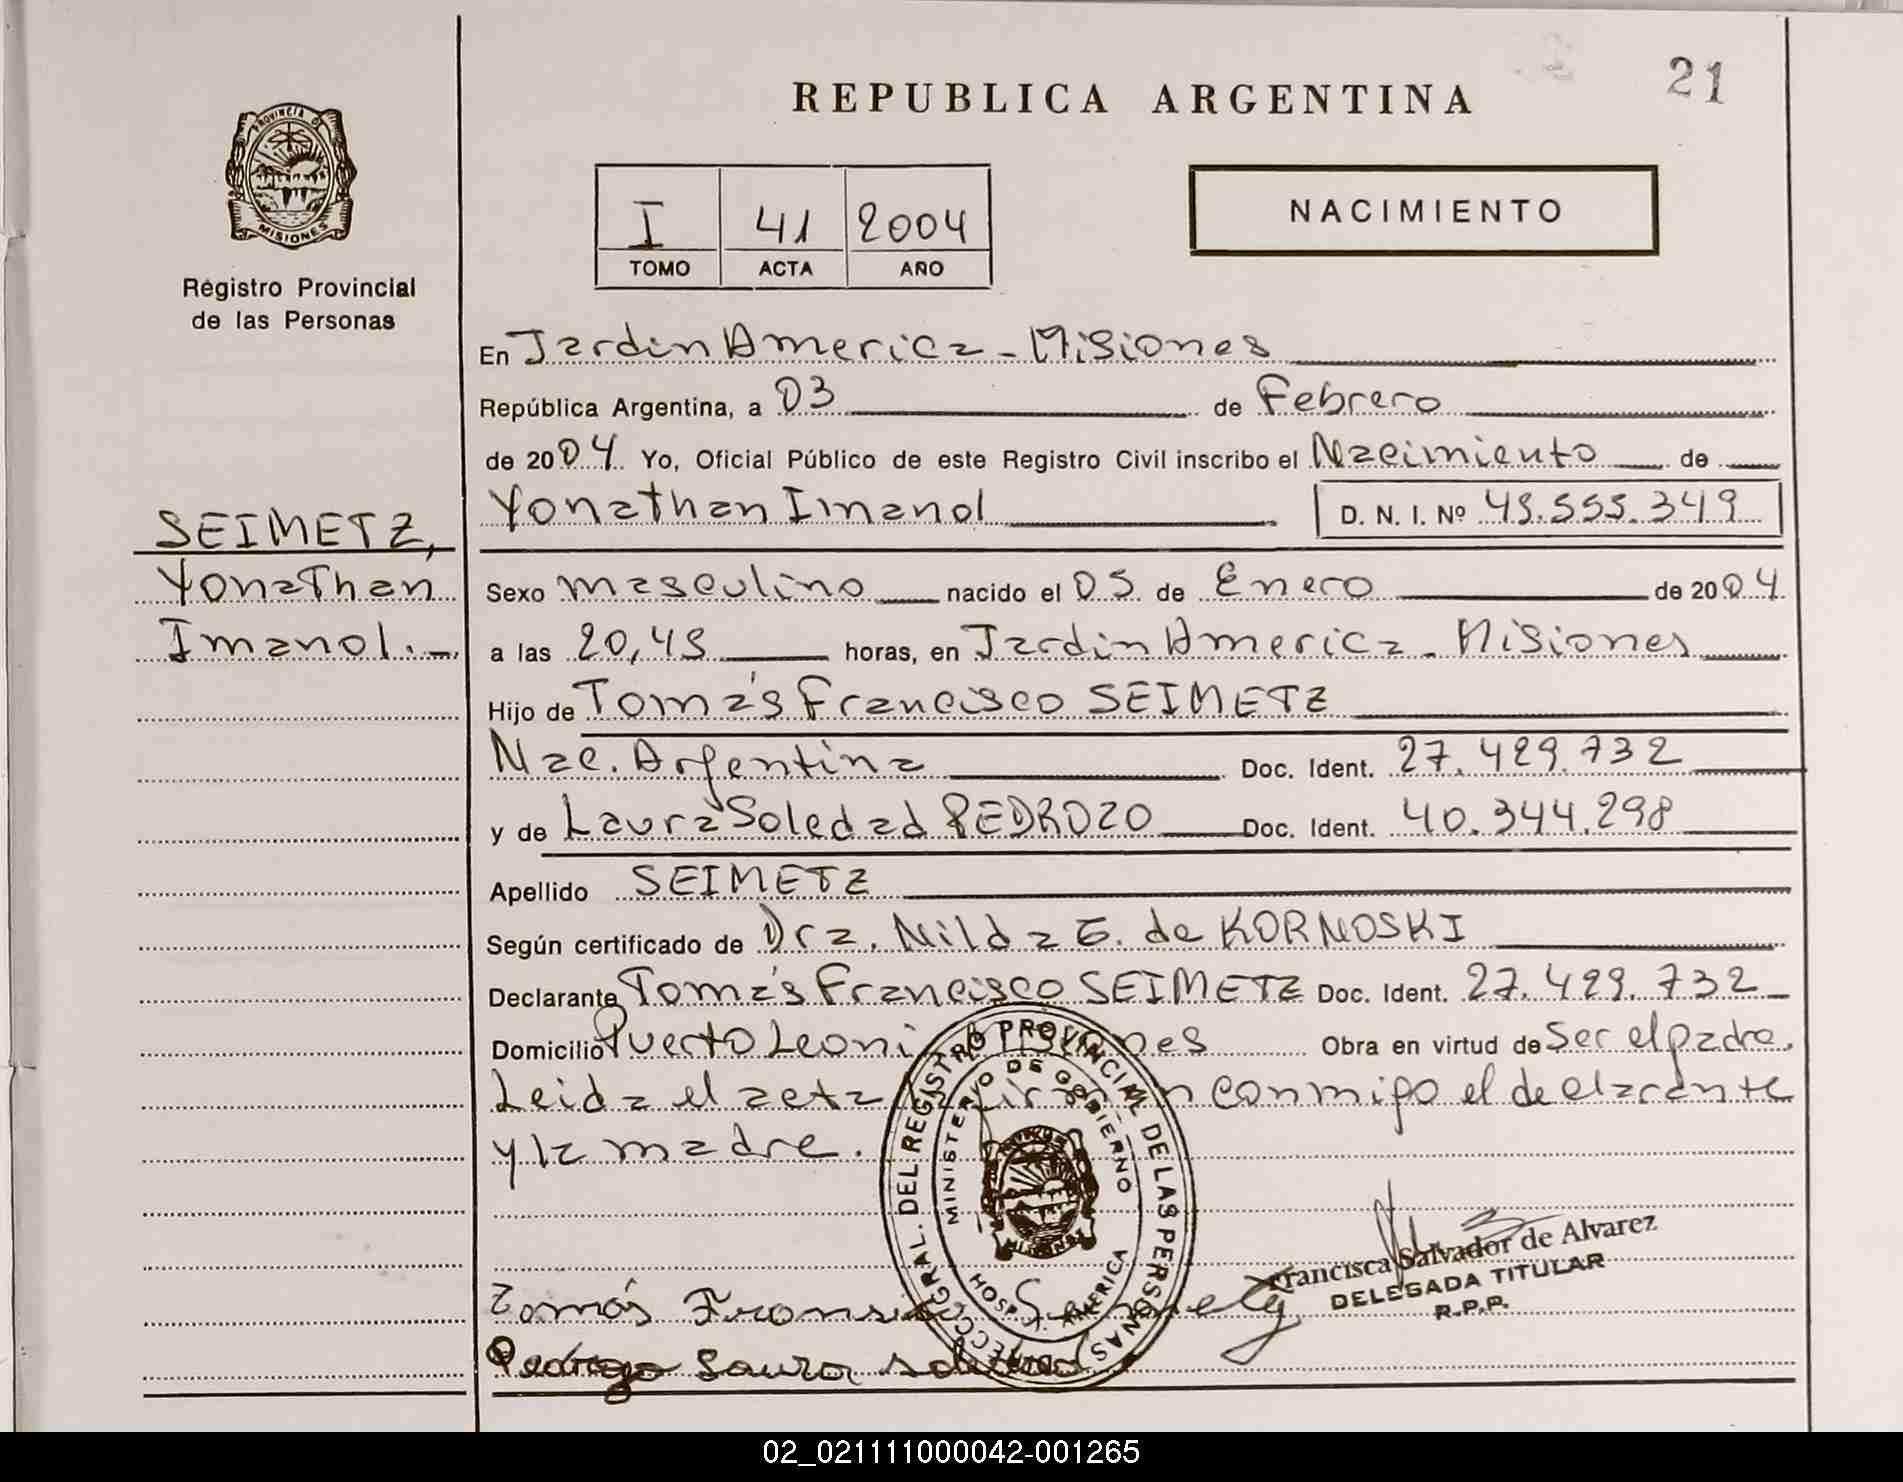 REPUBLICA ARGENTINA
21
PROVINCIA DE
MISIONES
Registro Provincial
de las Personas
I 41 2004
TOMO ACTA AÑO
NACIMIENTO
En Jardin America - Misiones
República Argentina, a 03 de Febrero
de 2004. Yo, Oficial Público de este Registro Civil inscribo el Nacimiento de
Yonathan Imanol D. N. I. Nº 45.555.349
SEIMETZ,
Yonathan
Imanol.-
Sexo masculino nacido el 05 de Enero de 2004
a las 20,45 horas, en Jardin America - Misiones
Hijo de Tomás Francisco SEIMETZ
Nac. Argentina Doc. Ident. 27.429.732
y de Laura Soledad PEDROZO Doc. Ident. 40.344.298
Apellido SEIMETZ
Según certificado de Dra. Nilda E. de KORNOSKI
Declarante Tomás Francisco SEIMETZ Doc. Ident. 27.429.732
Domicilio Puerto Leoni Misiones Obra en virtud de Ser el padre.
Leida el acta firman conmigo el declarante
y la madre.
DEL REGISTRO PROVINCIAL DE LAS PERSONAS
MINISTERIO DE GOBIERNO
MISIONES
HOSP. AMERICA
Francisca Salvador de Alvarez
DELEGADA TITULAR
R.P.P.
Tomás Fransisco Seimetz
Pedrozo Laura Soledad
02_021111000042-001265